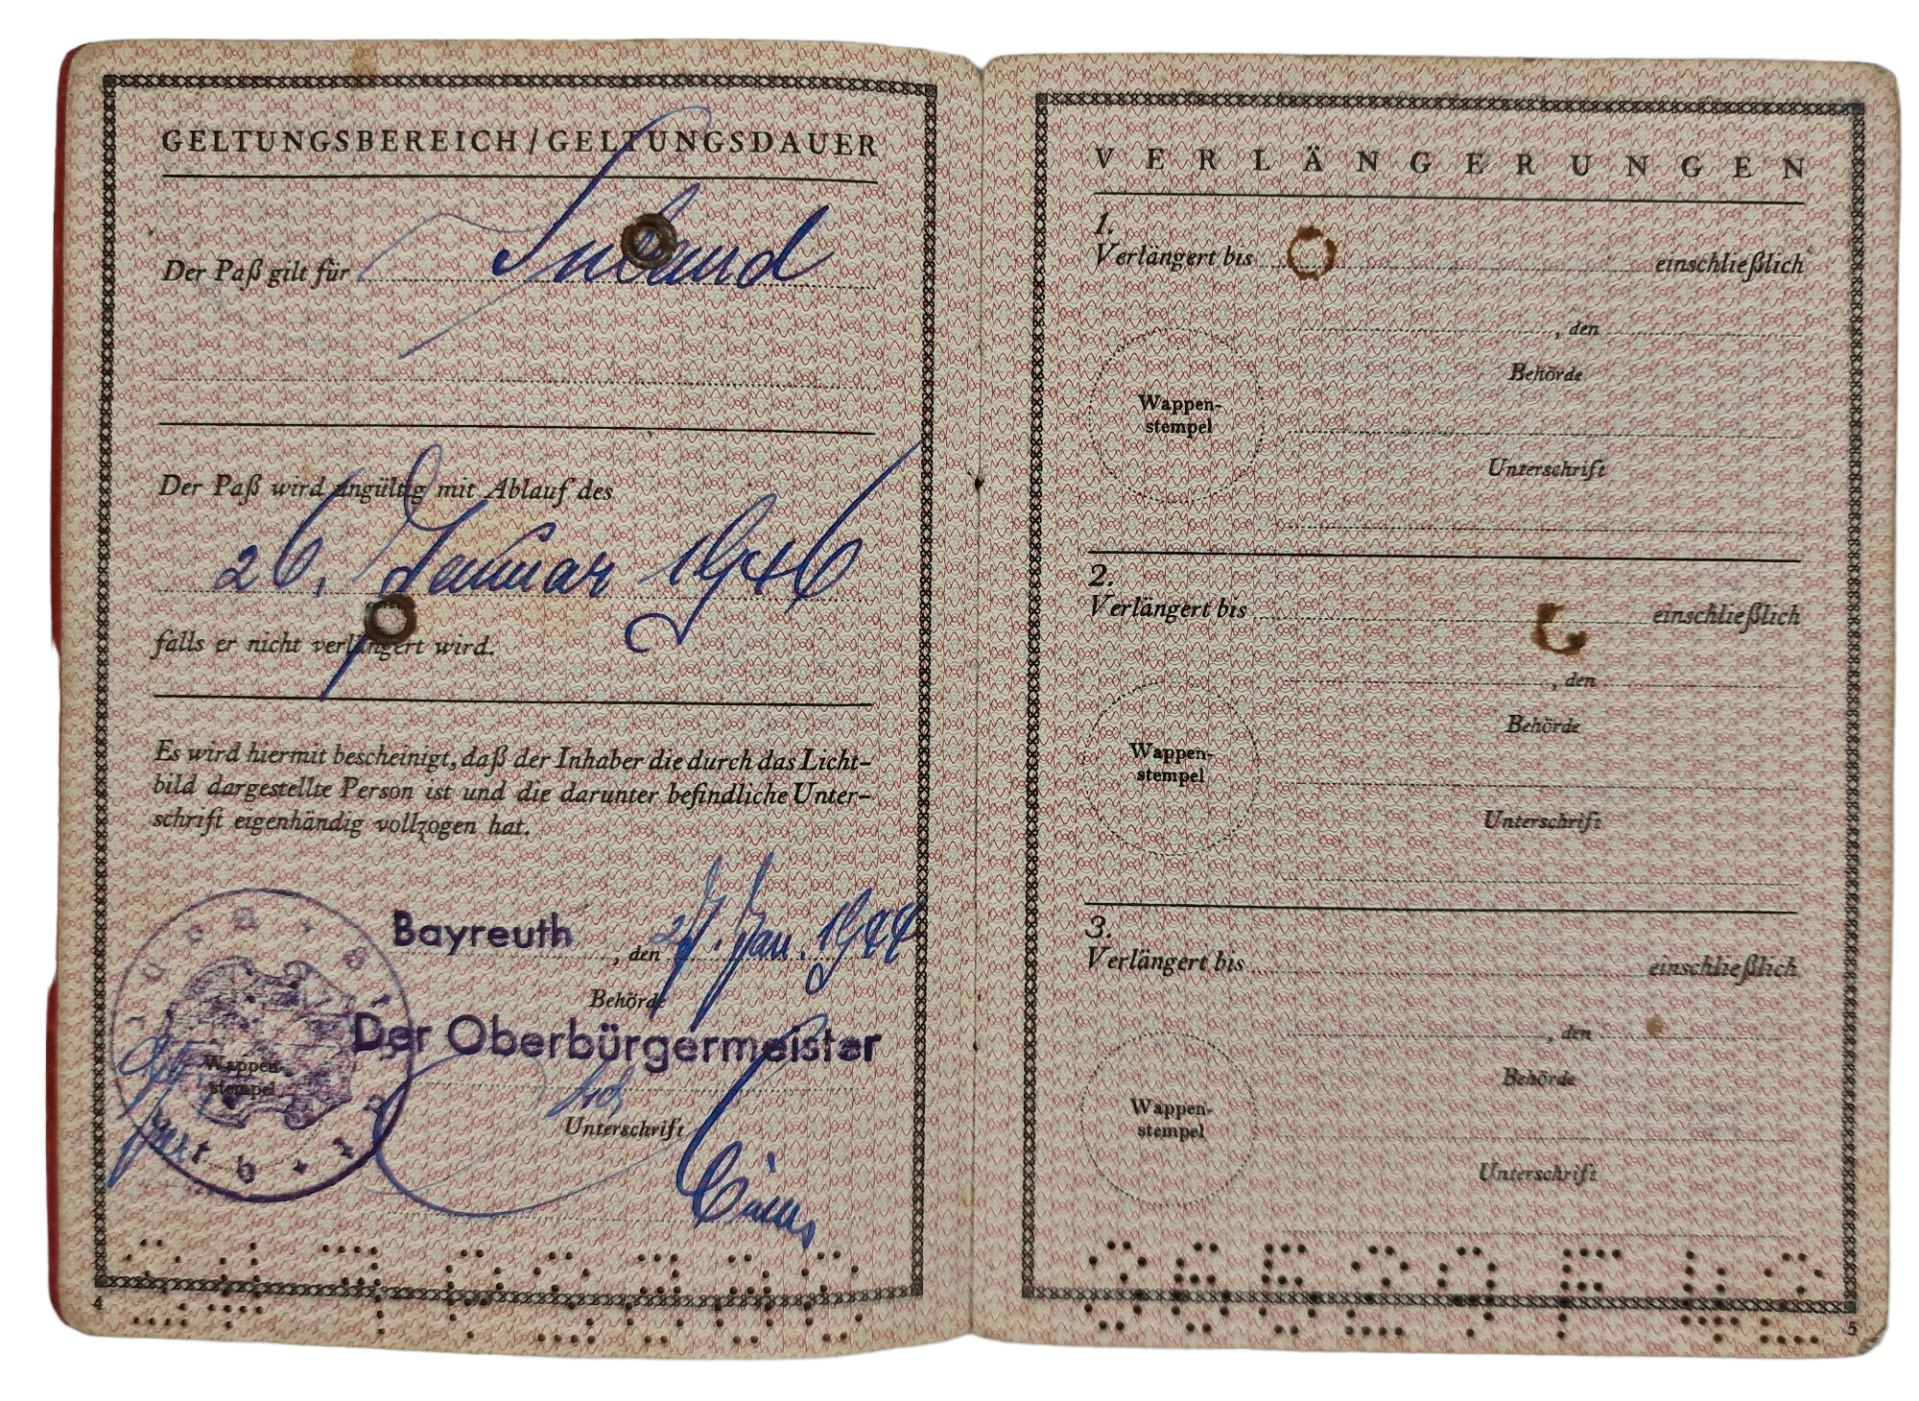 GELTUNGSBEREICH / GELTUNGSDAUER
Der Paß gilt für Inland
Der Paß wird ungültig mit Ablauf des
26. Januar 1946
falls er nicht verlängert wird.
Es wird hiermit bescheinigt, daß der Inhaber die durch das Licht-
bild dargestellte Person ist und die darunter befindliche Unter-
schrift eigenhändig vollzogen hat.
Bayreuth, den 27. Jan. 1944
Behörde
Der Oberbürgermeister
Wappen-
stempel
Unterschrift
4
VERLÄNGERUNGEN
1.
Verlängert bis einschließlich
, den
Behörde
Wappen-
stempel
Unterschrift
2.
Verlängert bis einschließlich
, den
Behörde
Wappen-
stempel
Unterschrift
3.
Verlängert bis einschließlich
, den
Behörde
Wappen-
stempel
Unterschrift
5